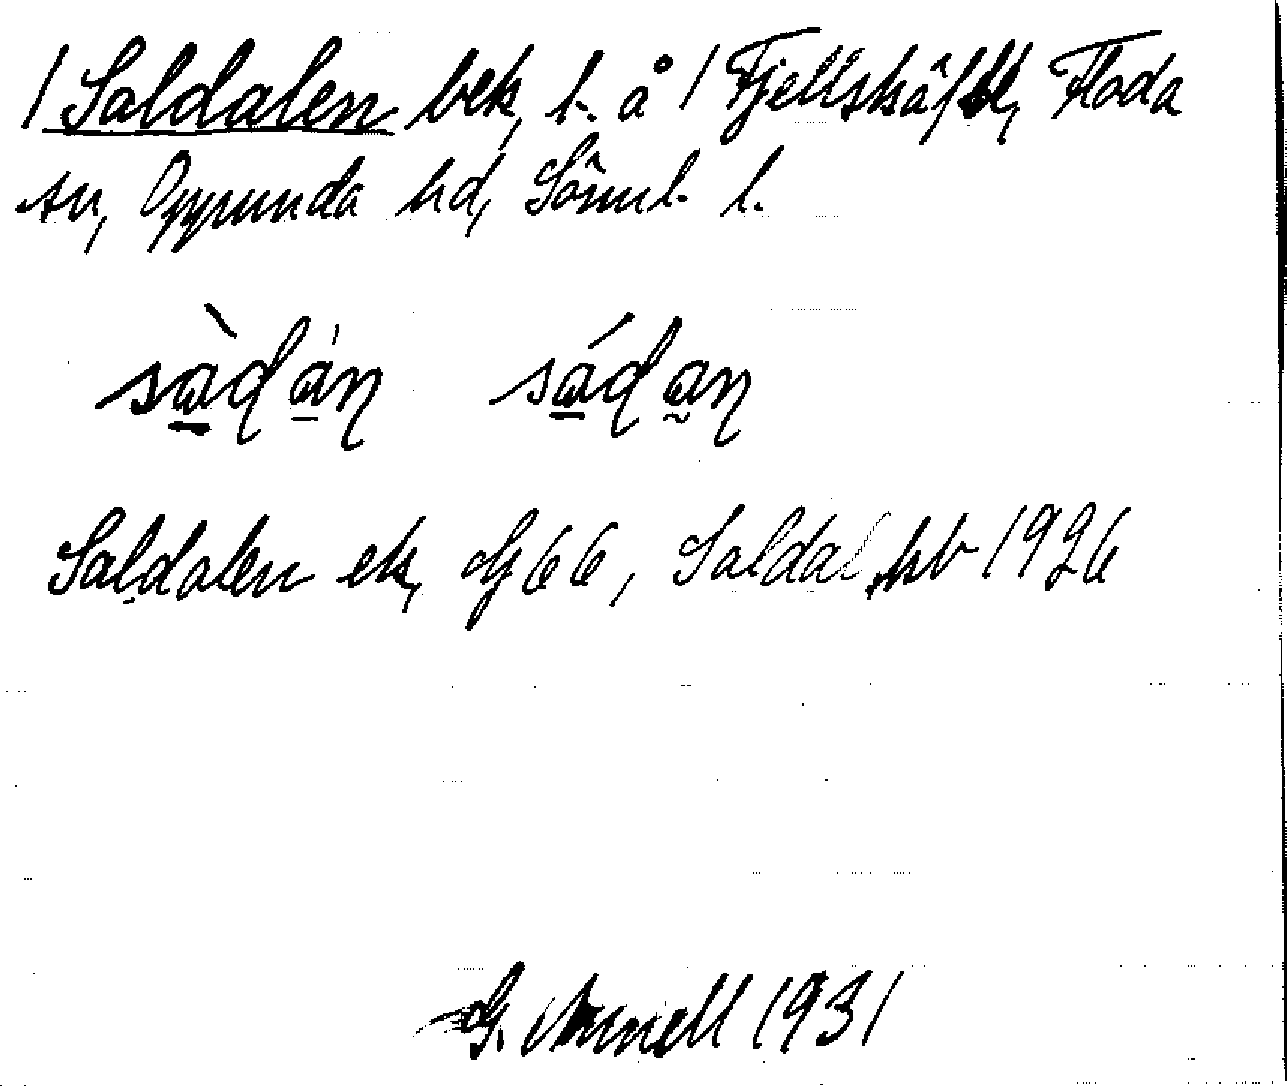 / Saldalen bek, l. å / Fjellskäfte, Floda
sn, Oppunda hd, Söml. l.
sàdán sádan
Saldalen ek, G 66, Saldal, kb 1926
G. Annell 1931